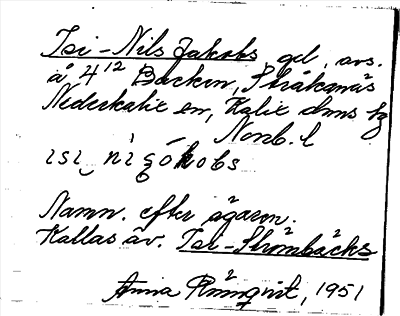 Isi-Nils Jakobs, gd, avs.
å 4¹² Backen, Stråkanäs
Nederkalix sn, Kalix dms tg
Nonb. l
ısı‿nìsókobs
Namn. efter ägaren.
Kallas äv. Isi-Strömbäcks
Anna Rönnqvist, 1951